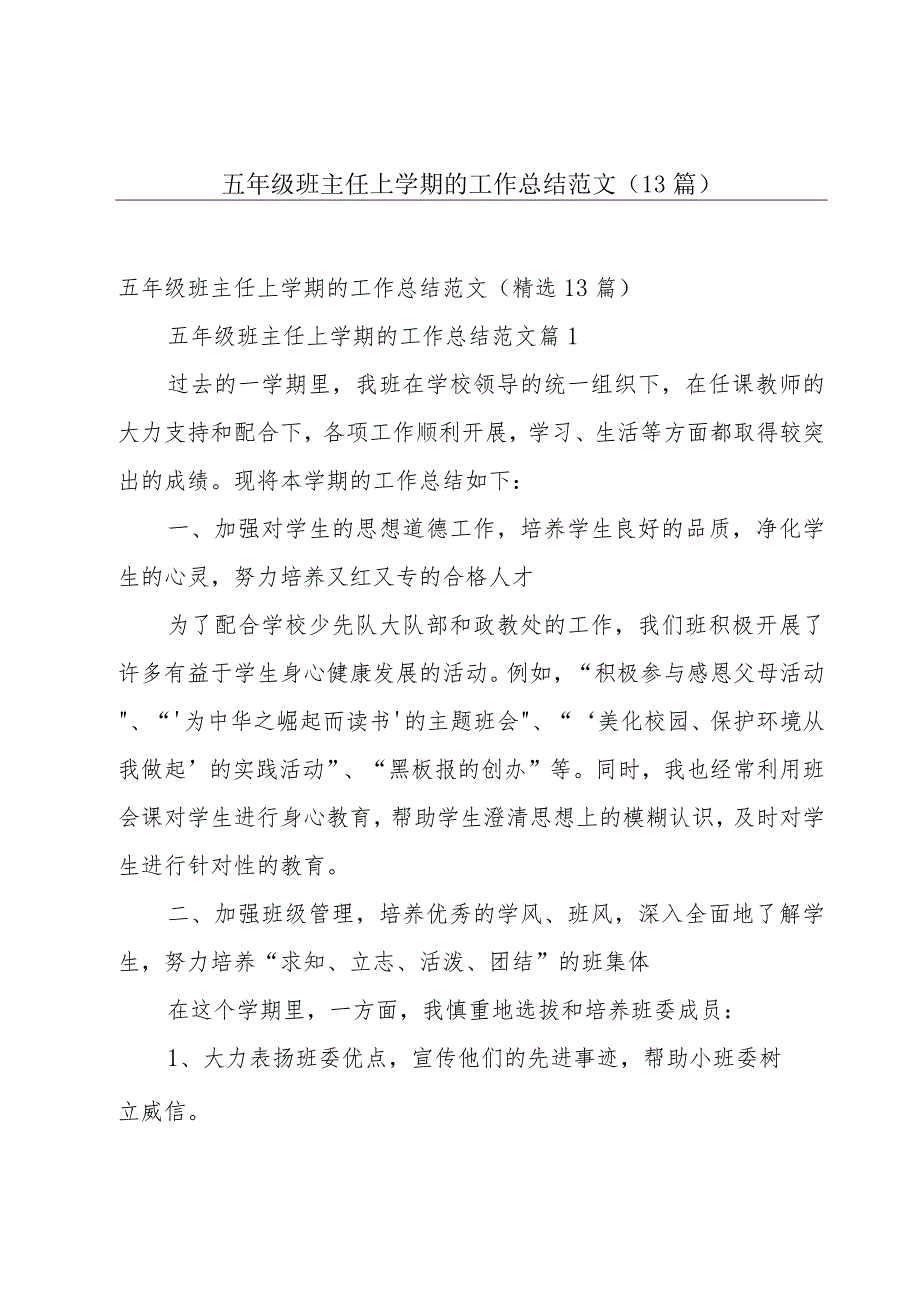 五年级班主任上学期的工作总结范文（13 篇）
五年级班主任上学期的工作总结范文（精选 13 篇）
五年级班主任上学期的工作总结范文篇 1
过去的一学期里，我班在学校领导的统一组织下，在任课教师的
大力支持和配合下，各项工作顺利开展，学习、生活等方面都取得较突
出的成绩。现将本学期的工作总结如下：
一、加强对学生的思想道德工作，培养学生良好的品质，净化学
生的心灵，努力培养又红又专的合格人才
为了配合学校少先队大队部和政教处的工作，我们班积极开展了
许多有益于学生身心健康发展的活动。例如，“积极参与感恩父母活动
"、“'为中华之崛起而读书'的主题班会"、“‘美化校园、保护环境从
我做起’的实践活动”、“黑板报的创办”等。同时，我也经常利用班
会课对学生进行身心教育，帮助学生澄清思想上的模糊认识，及时对学
生进行针对性的教育。
二、加强班级管理，培养优秀的学风、班风，深入全面地了解学
生，努力培养“求知、立志、活泼、团结”的班集体
在这个学期里，一方面，我慎重地选拔和培养班委成员：
1、大力表扬班委优点，宣传他们的先进事迹，帮助小班委树
立威信。